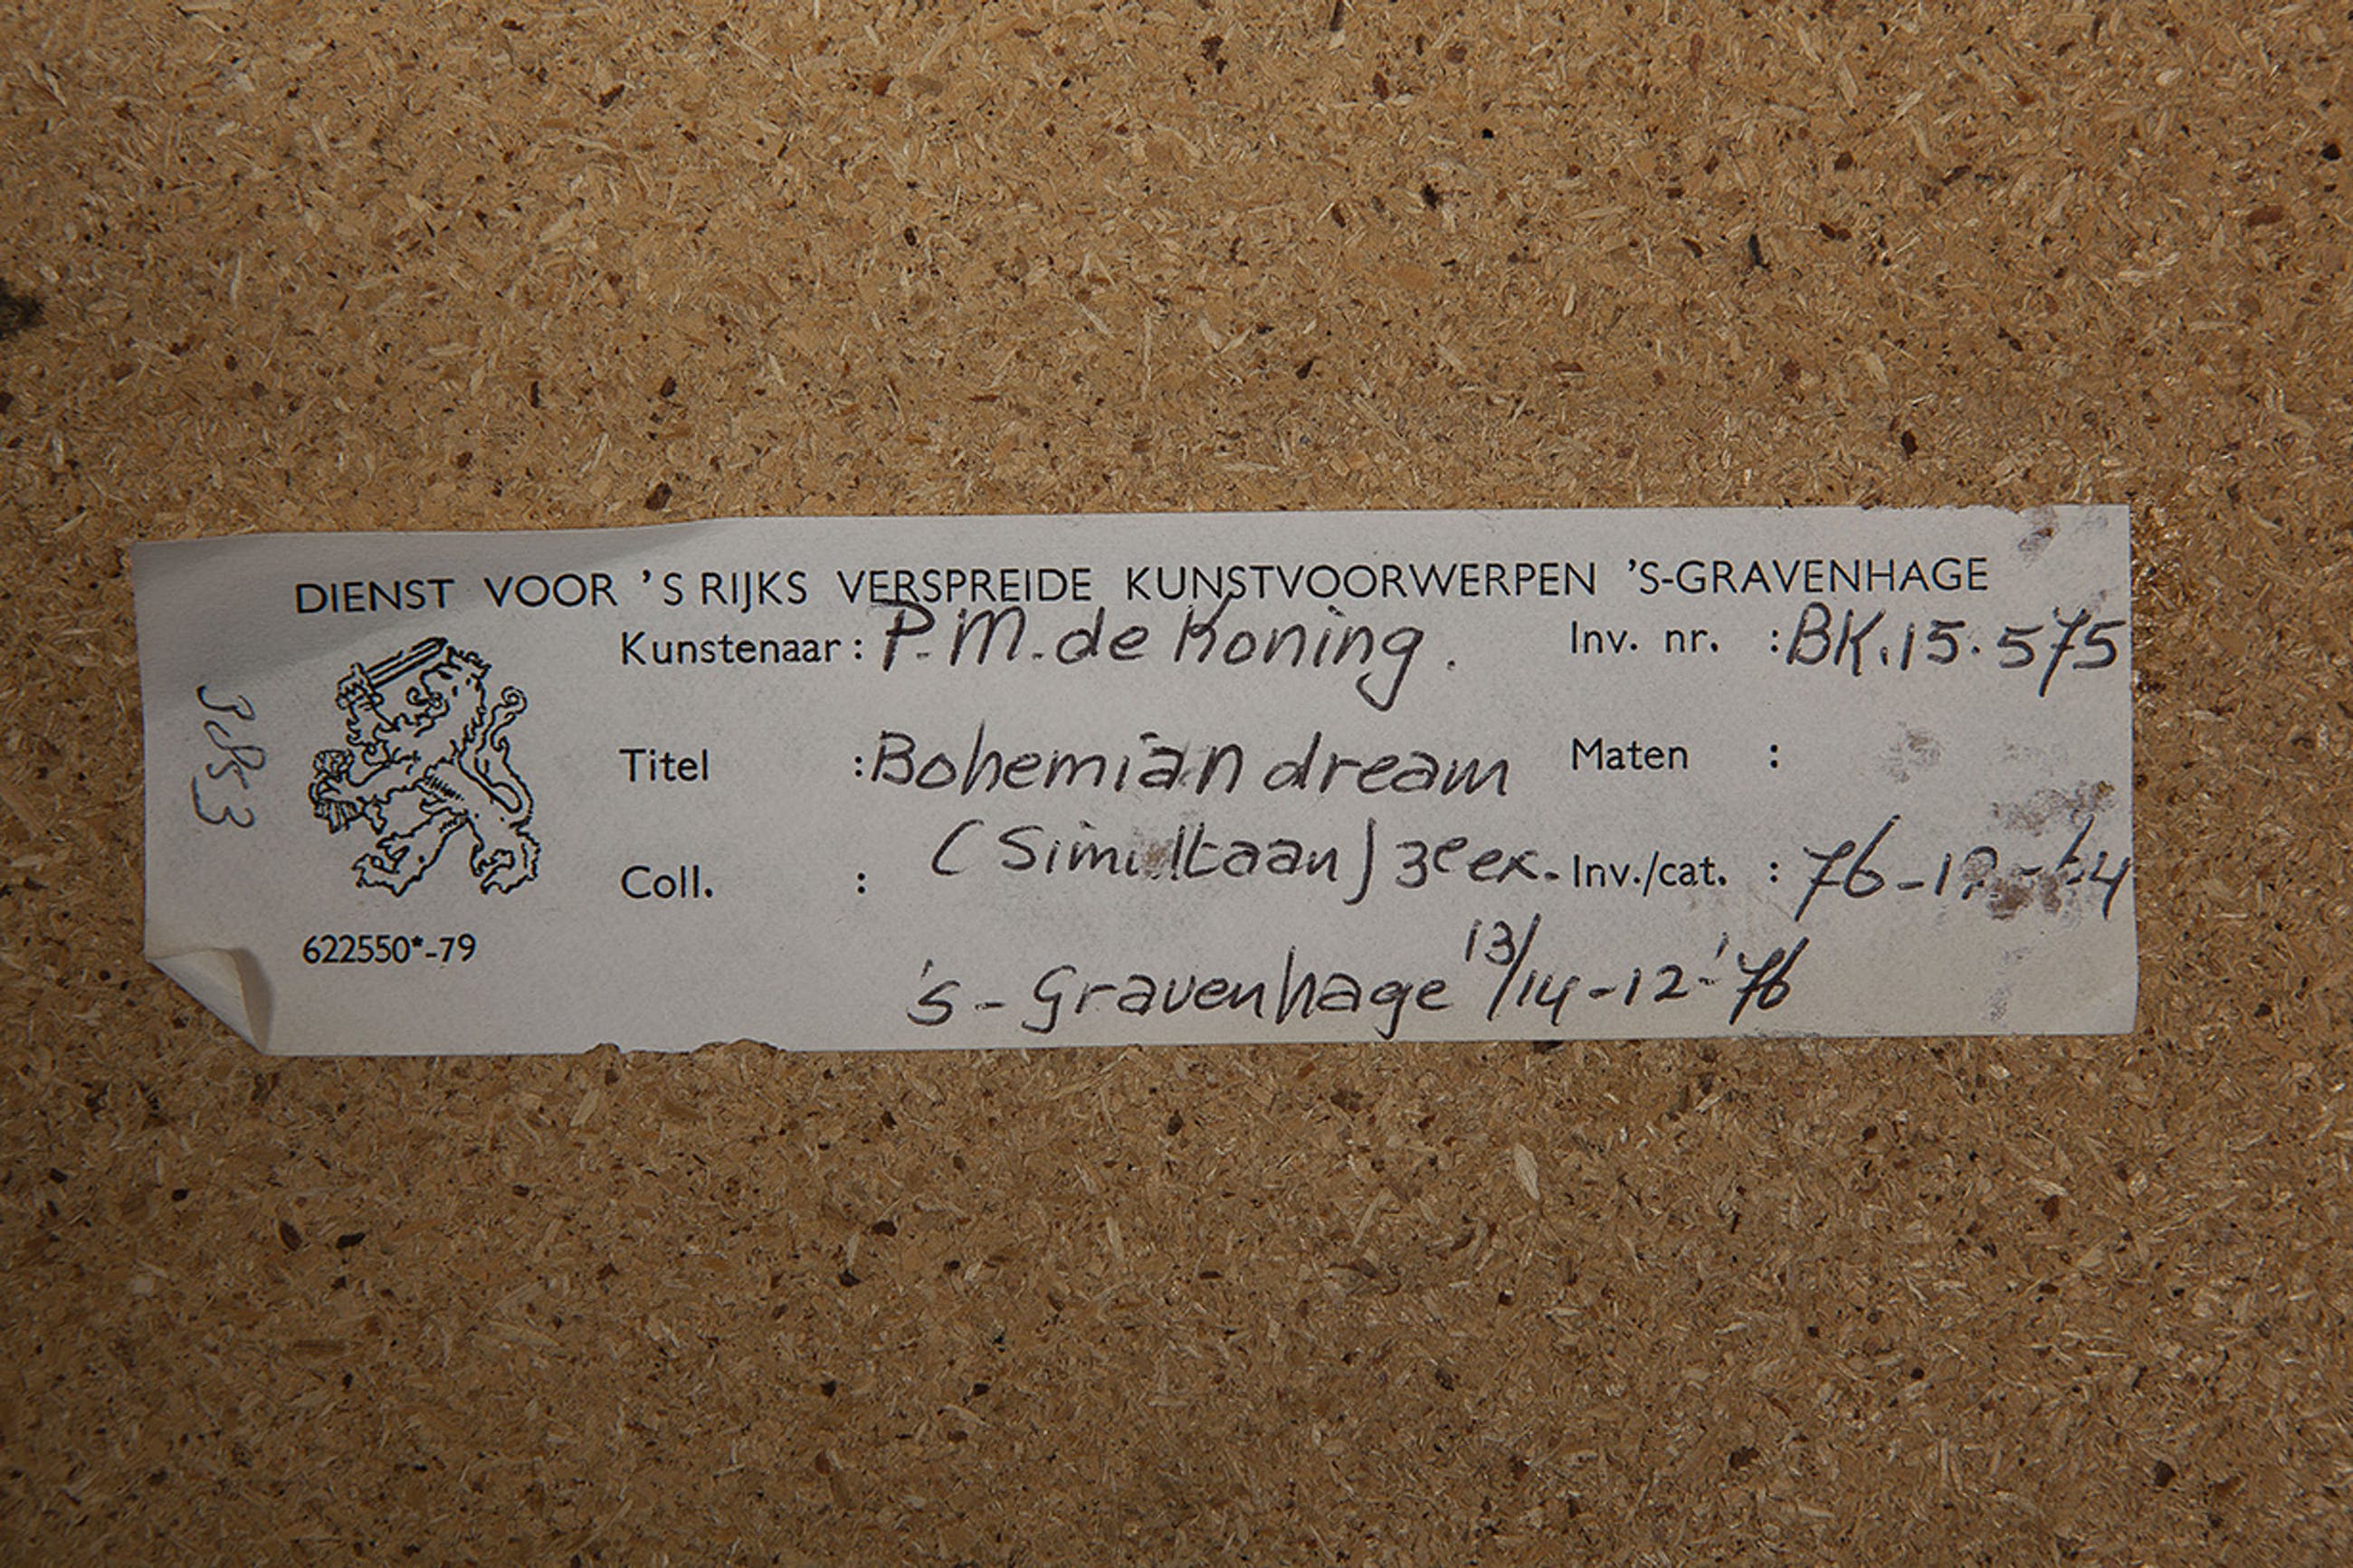 DIENST VOOR 'S RIJKS VERSPREIDE KUNSTVOORWERPEN 'S-GRAVENHAGE
Kunstenaar: P.M. de Koning. Inv. nr. : BK.15.575
Titel : Bohemian dream Maten :
Coll. : (Simultaan) 3e ex. Inv./cat. :
622550*-79
's-Gravenhage 13/14-12-'76